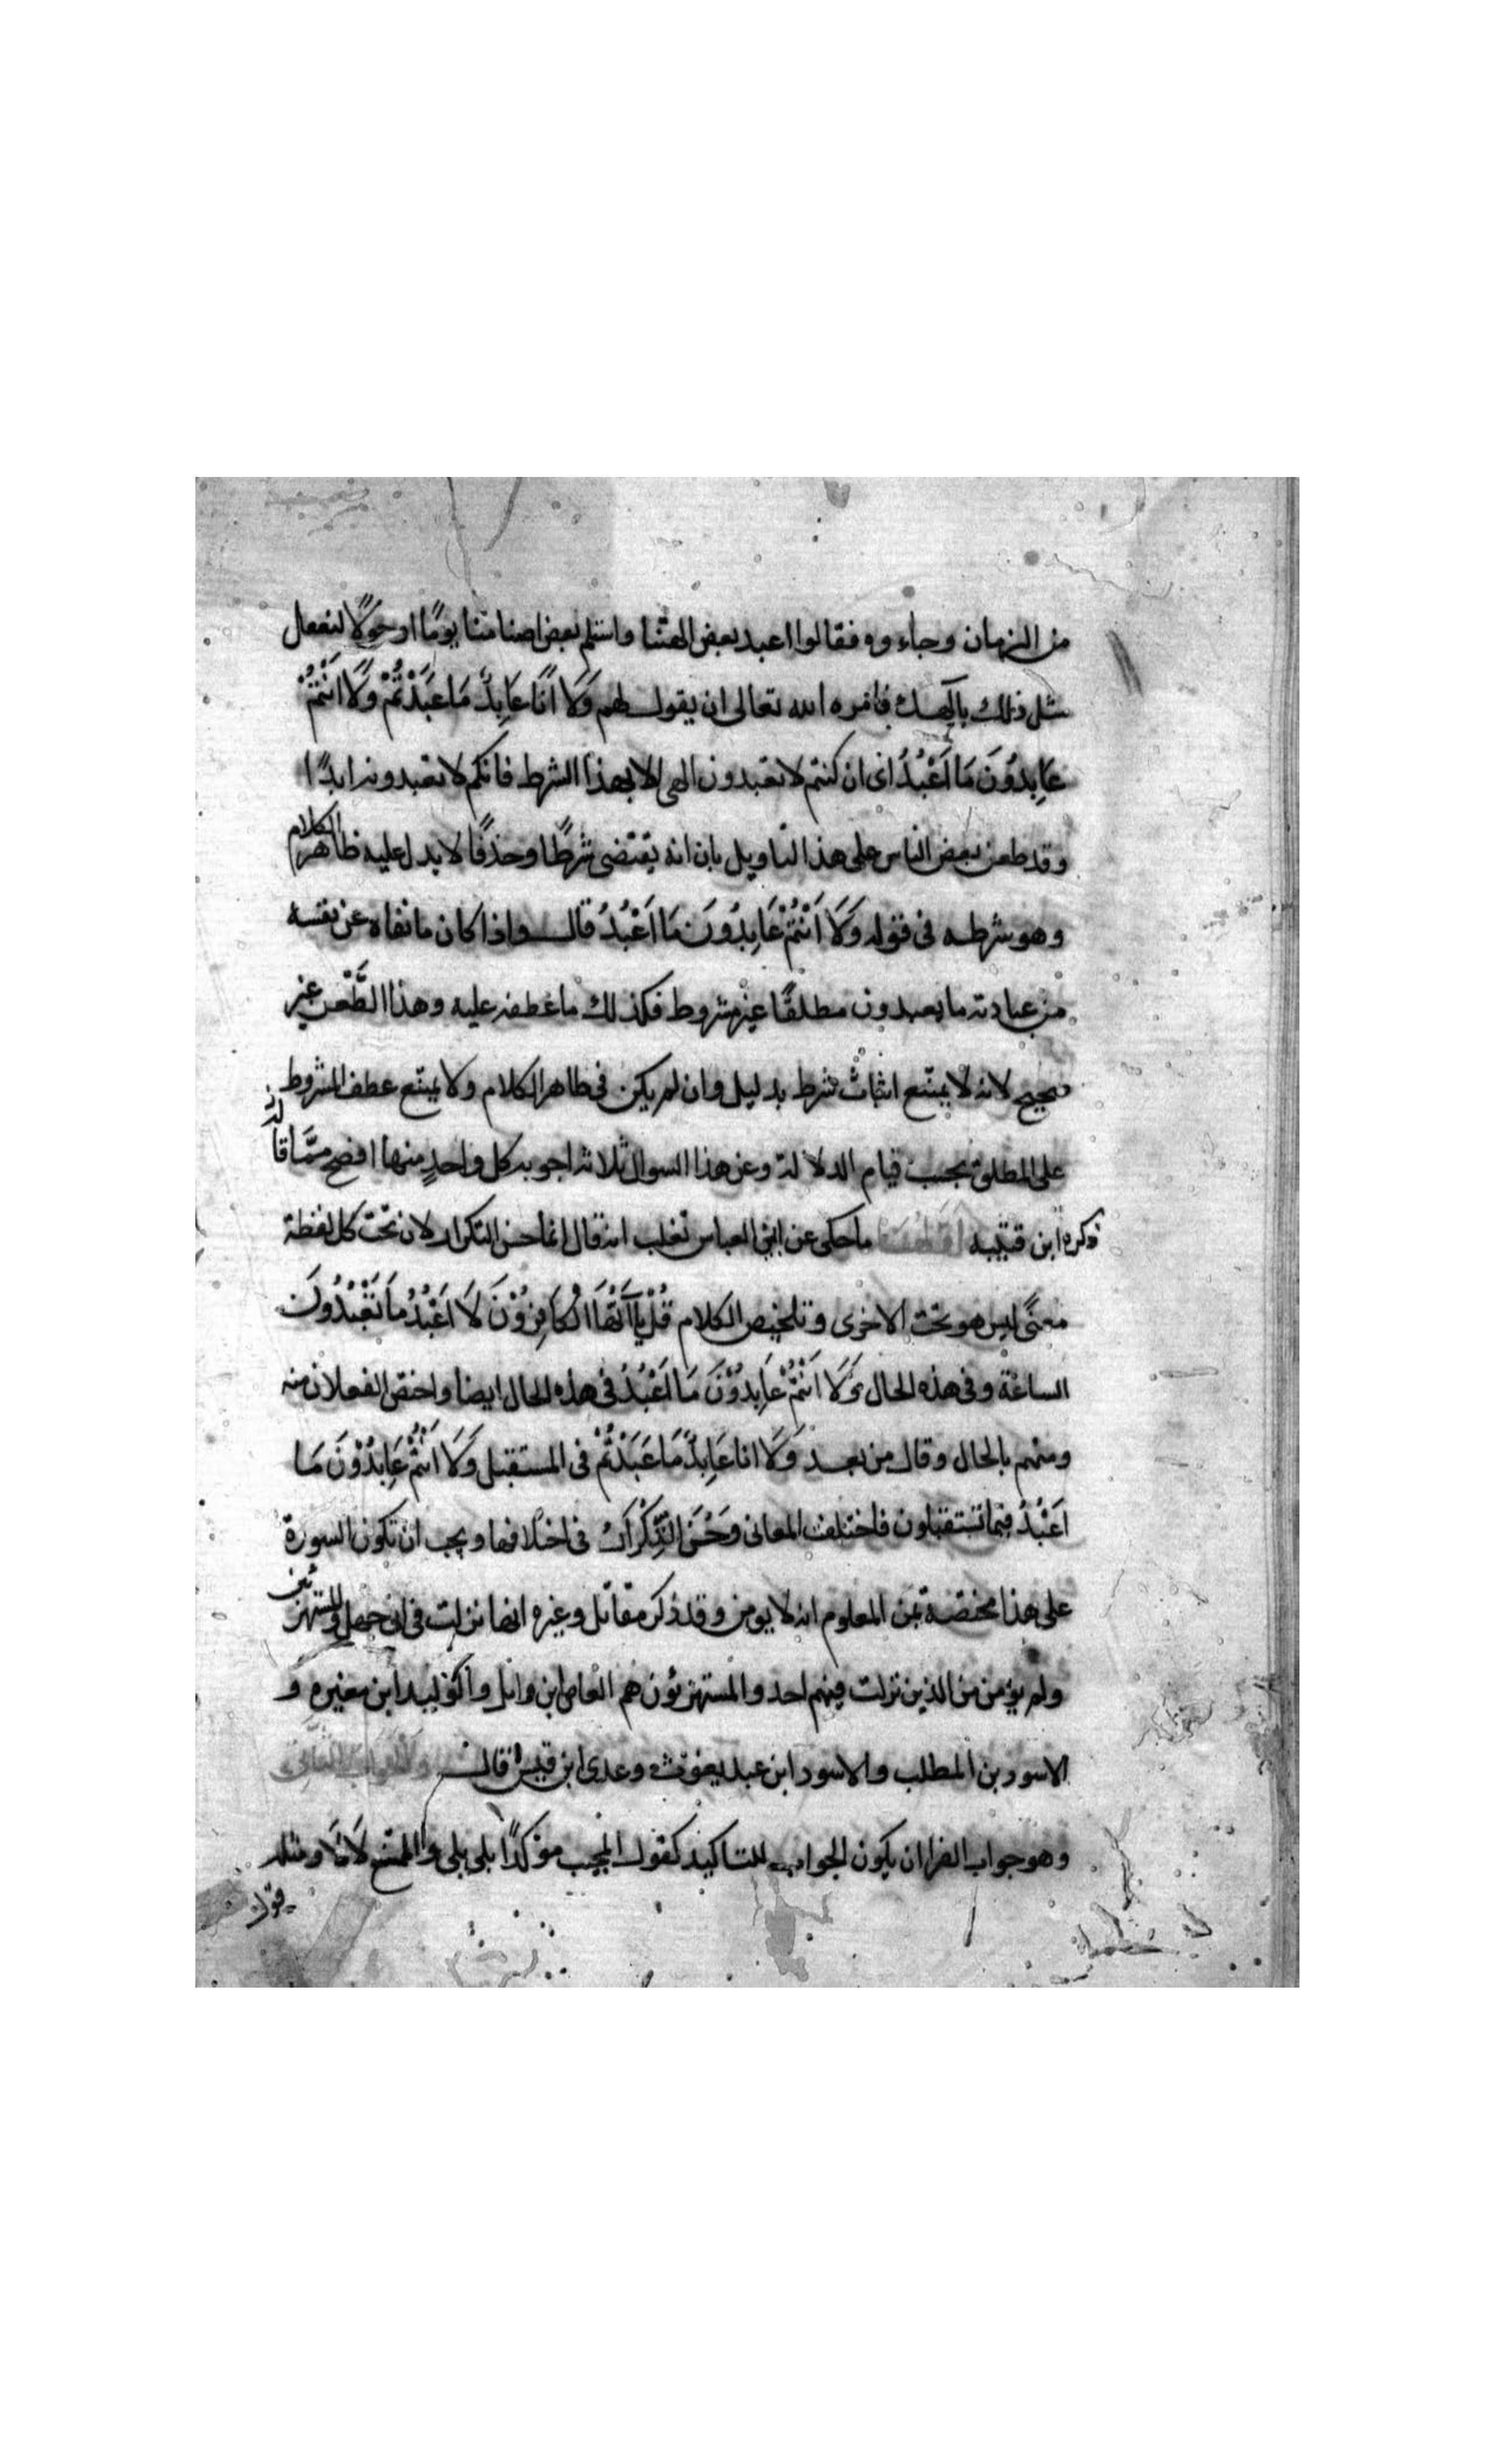 من الزمان وجاءوه فقالوا اعبد بعض الهتنا واستلم بعض اصنامنا يومًا او حَولًا لنفعل
مثل ذلك بالهك فامره الله تعالى ان يقول لهم وَلَا اَنَا عَابِدٌ مَا عَبَدْتُمْ وَلَا اَنْتُمْ
عَابِدُونَ مَا اَعْبُدُ اى ان كنتم لا تعبدون الهى الا بهذا الشرط فانكم لا تعبدونه ابدًا
وقد طعن بعض الناس على هذا التاويل بان انه يقتضى شرطًا وحذفًا لا يدل عليه ظاهر الكلام
وهو شرطه فى قوله وَلَا اَنْتُمْ عَابِدُونَ مَا اَعْبُدُ قال واذا كان ما نفاه عن نفسه
من عبادته ما يعبدون مطلقًا غير مشروط فكذلك ما عطفه عليه وهذا الطَّعْن غير
صحيح لانه لا يمتنع اثبات شرط بدليل وان لم يكن فى ظاهر الكلام ولا يمتنع عطف المشروط
على المطلق بحسب قيام الدلالة وعن هذا السوال ثلاثه اجوبه كل واحدٍ منها اوضح ممَّا قاله
ذكره ابن قتيبه اولها ما حكى عن ابى العباس ثعلب انه قال انما حسن التكرار لان تحت كل لفظة
معنًى ليس هو تحت الاخرى وتلخيص الكلام قُلْ يَا اَيُّهَا الْكَافِرُوْنَ لَا اَعْبُدُ مَا تَعْبُدُونَ
الساعة وفى هذه الحال وَلَا اَنْتُمْ عَابِدُوْنَ مَا اَعْبُدُ فى هذه الحال ايضا واختص الفعلان منه
ومنهم بالحال وقال من بعد وَلَا انا عَابِدٌ مَا عَبَدْتُمْ فى المستقبل وَلَا اَنْتُمْ عَابِدُوْنَ مَا
اَعْبُدُ فيما تستقبلون فاختلف المعانى وَحَسُنَ التَّكْرَار فى اختلافها ويجب ان تكون السورة
على هذا مختصة بمن المعلوم انه لا يومن وقد ذكر مقاتل وغيره انها نزلت فى ابى جهل والمستهزئين
ولم يؤمن من الذين نزلت فيهم احد والمستهزئون هم العاص ابن وائل والوليد ابن مغيره و
الاسود بن المطلب والاسود ابن عبد يغوث وعدى ابن قيس قال والجواب الثانى
وهو جواب الفرا ان يكون الجواب للتاكيد كقول المجيب موكدًا بلى بلى والممتنع لا لا ومثله
قوله